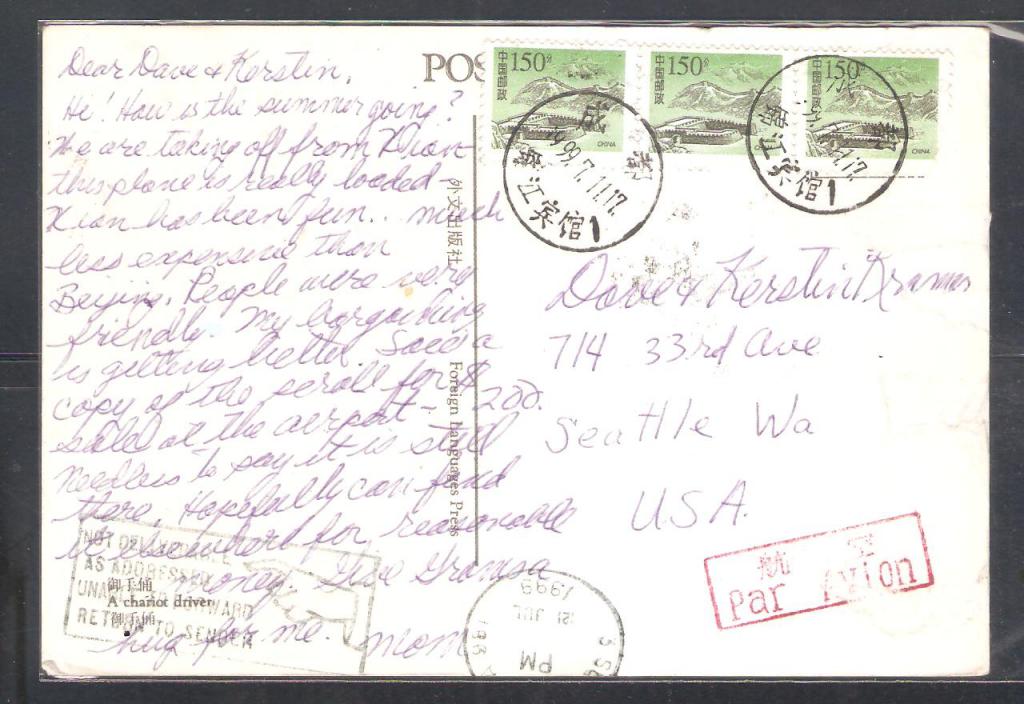 Dear Dave & Kerstin,
Hi! How is the summer going?
We are taking off from Xian
this plane is really loaded
Xian has been fun. much
less expensive than
Beijing. People were very
friendly. My bargaining
is getting better. Saw a
copy of the scroll for $200.
sale at the airport -
Needless to say it is still
there, Hopefully can find
it elsewhere for reasonable
money. Give Grampa
hug for me. Mom
POS
150分
中国邮政
CHINA
150分
中国邮政
150分
中国邮政
CHINA
成都
99.7.11.17.
锦江宾馆1
都
锦江宾馆1
外文出版社
Foreign Languages Press
Dave & Kerstin
714 33rd Ave
Seattle Wa
USA.
航空
Par Avion
NOT DELIVERABLE
AS ADDRESSED
UNABLE TO FORWARD
RETURN TO SENDER
御手俑
A chariot driver
御手俑
PM
21 JUL
1999